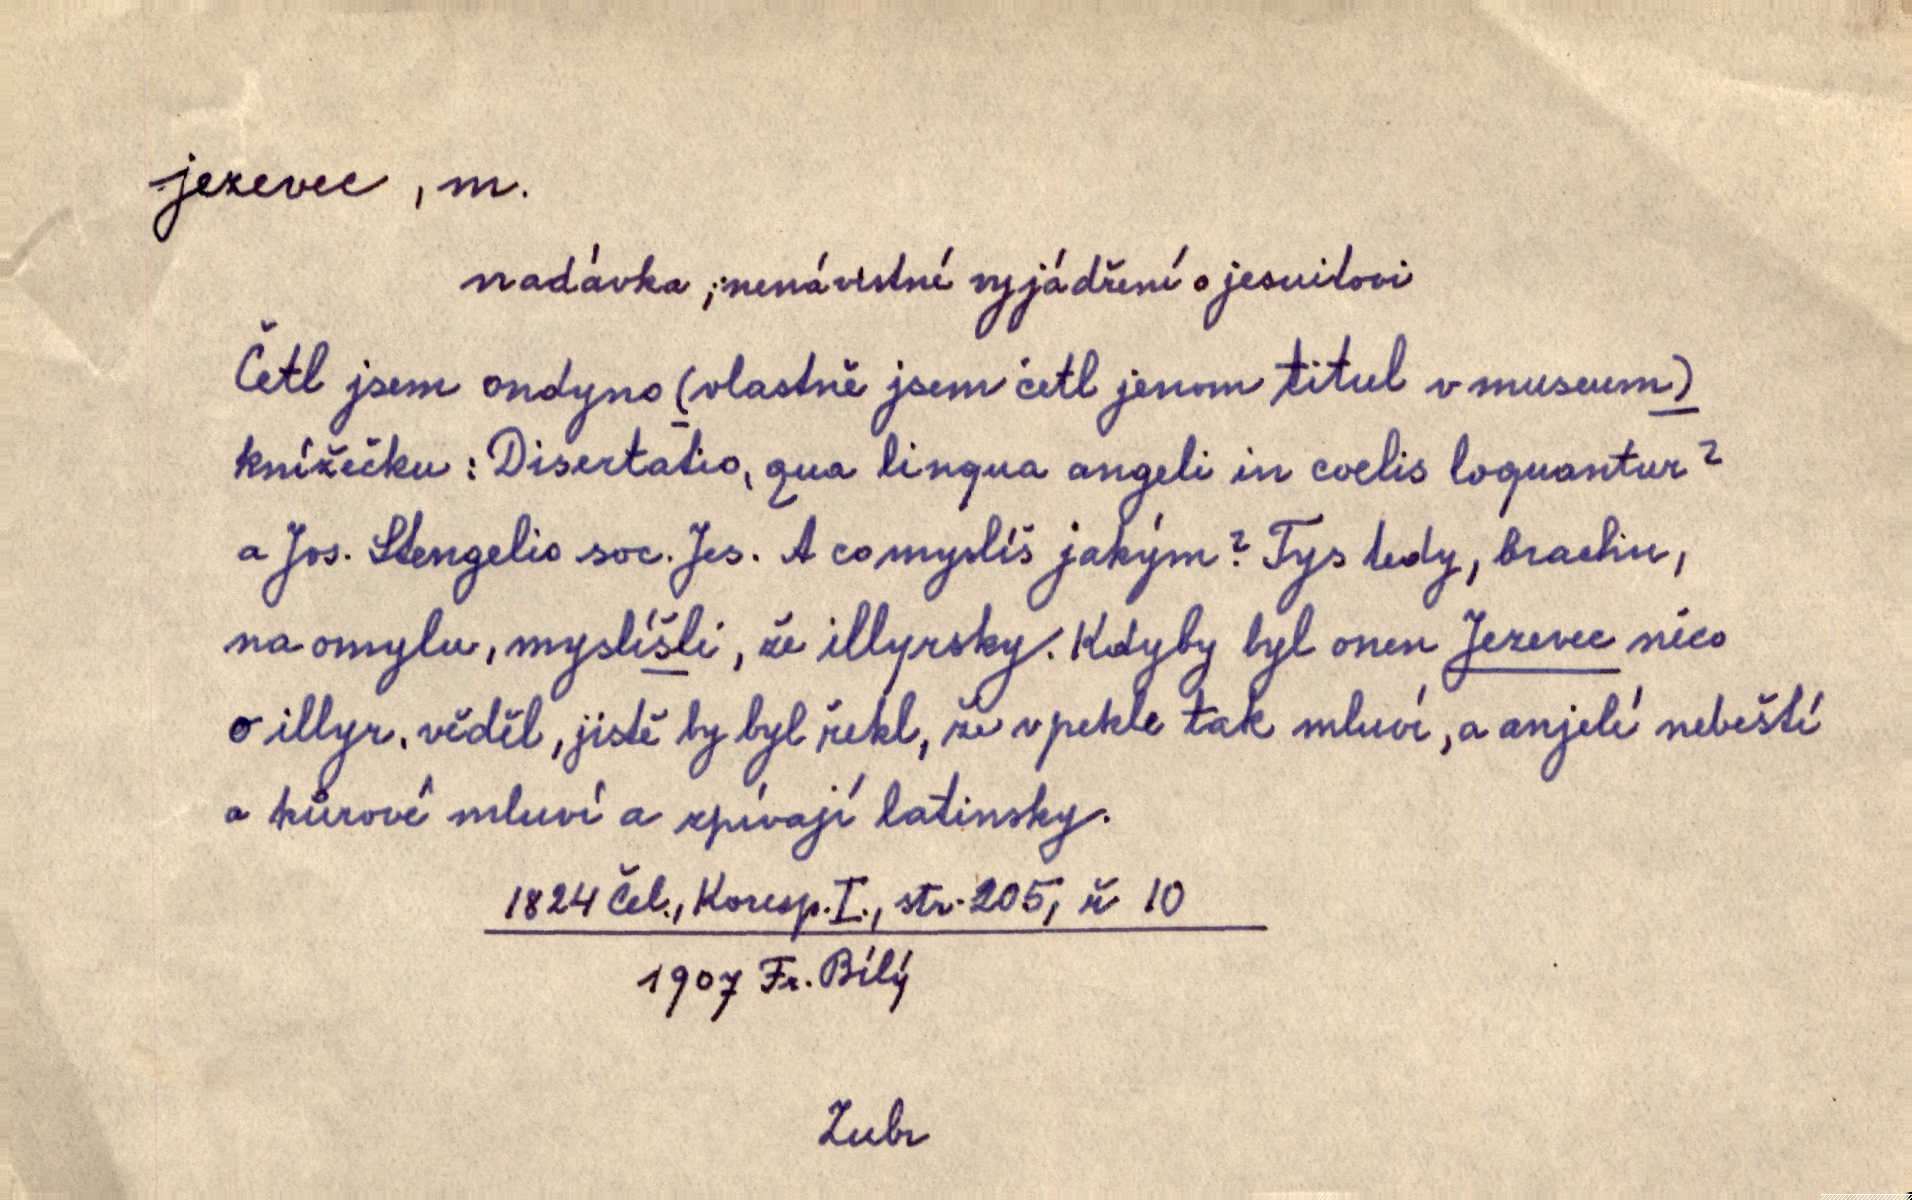 jezevec, m.
nadávka; nenávistné vyjádření o jesuitovi
Četl jsem ondyno (vlastně jsem četl jenom titul v museum)
knížečku: Disertatio, qua lingua angeli in coelis loquantur?
a Jos. Stengelio soc. Jes. A co myslíš jakým? Tys tedy, brachu,
na omylu, myslíšli, že illyrsky. Kdyby byl onen Jezevec něco
o illyr. věděl, jistě by byl řekl, že v pekle tak mluví, a anjelí nebeští
a kůrové mluví a zpívají latinsky.
1824 Čel., Koresp. I., str. 205, ř. 10
1907 Fr. Bílý
Zubr